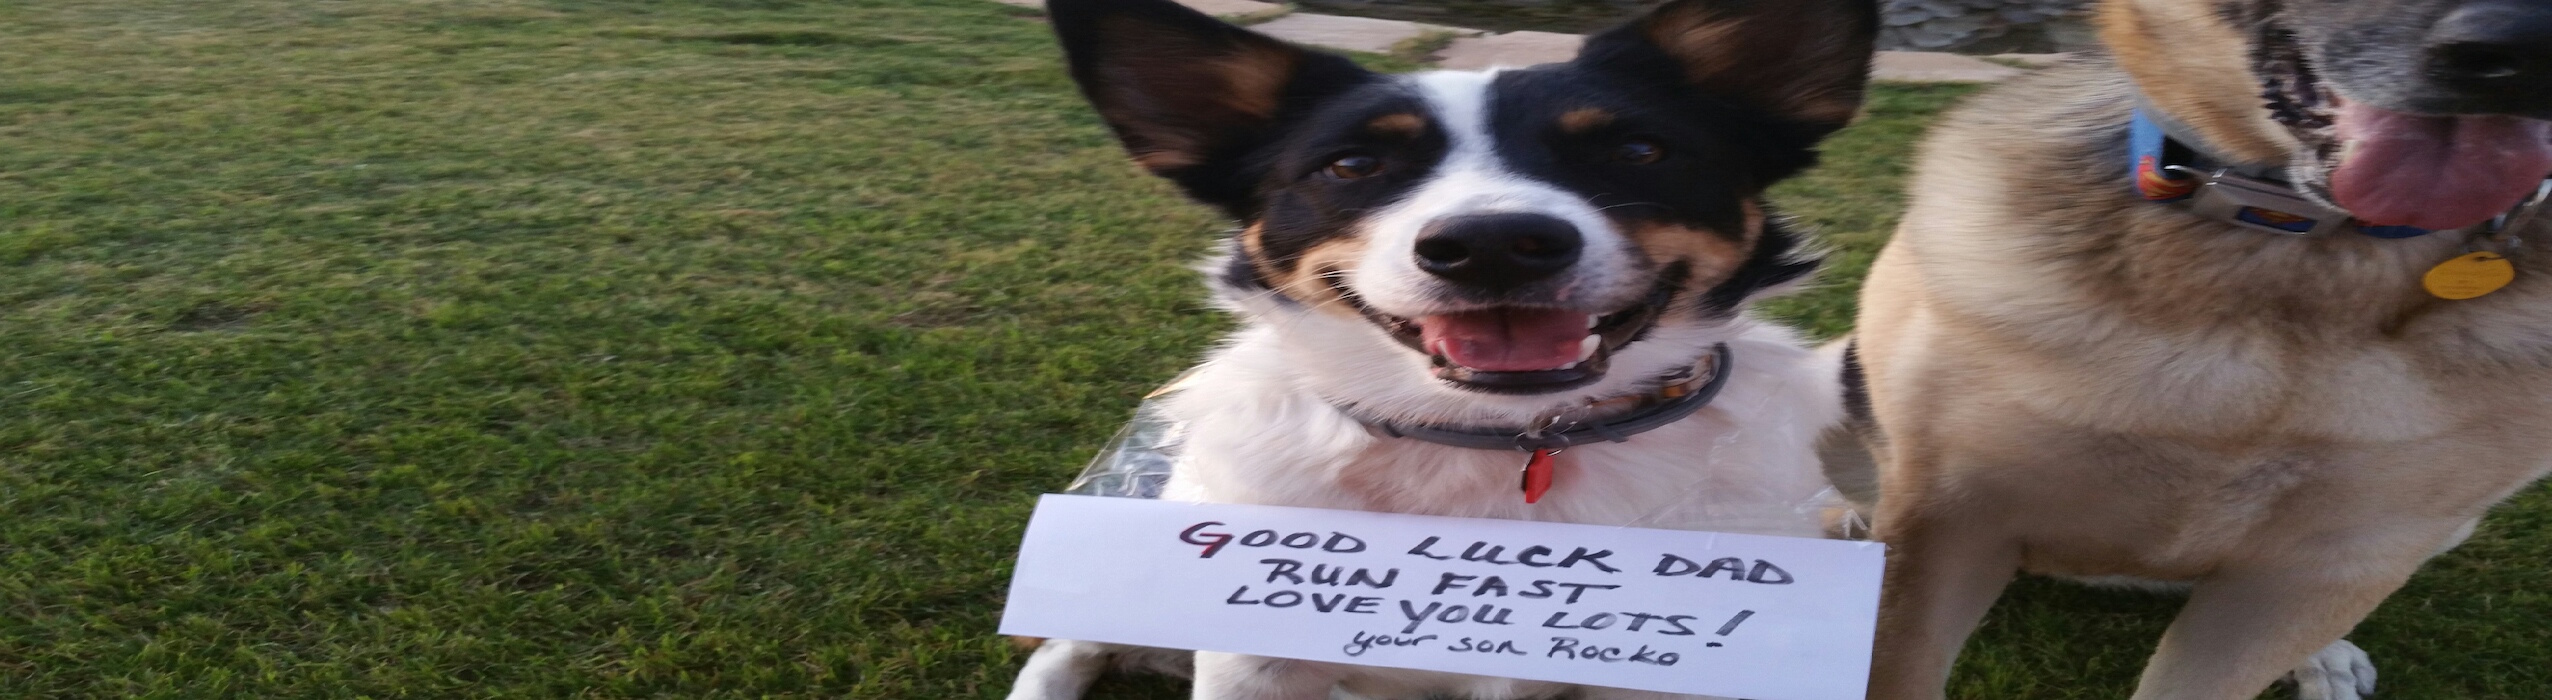 GOOD LUCK DAD
RUN FAST
LOVE YOU LOTS!
your son Rocko